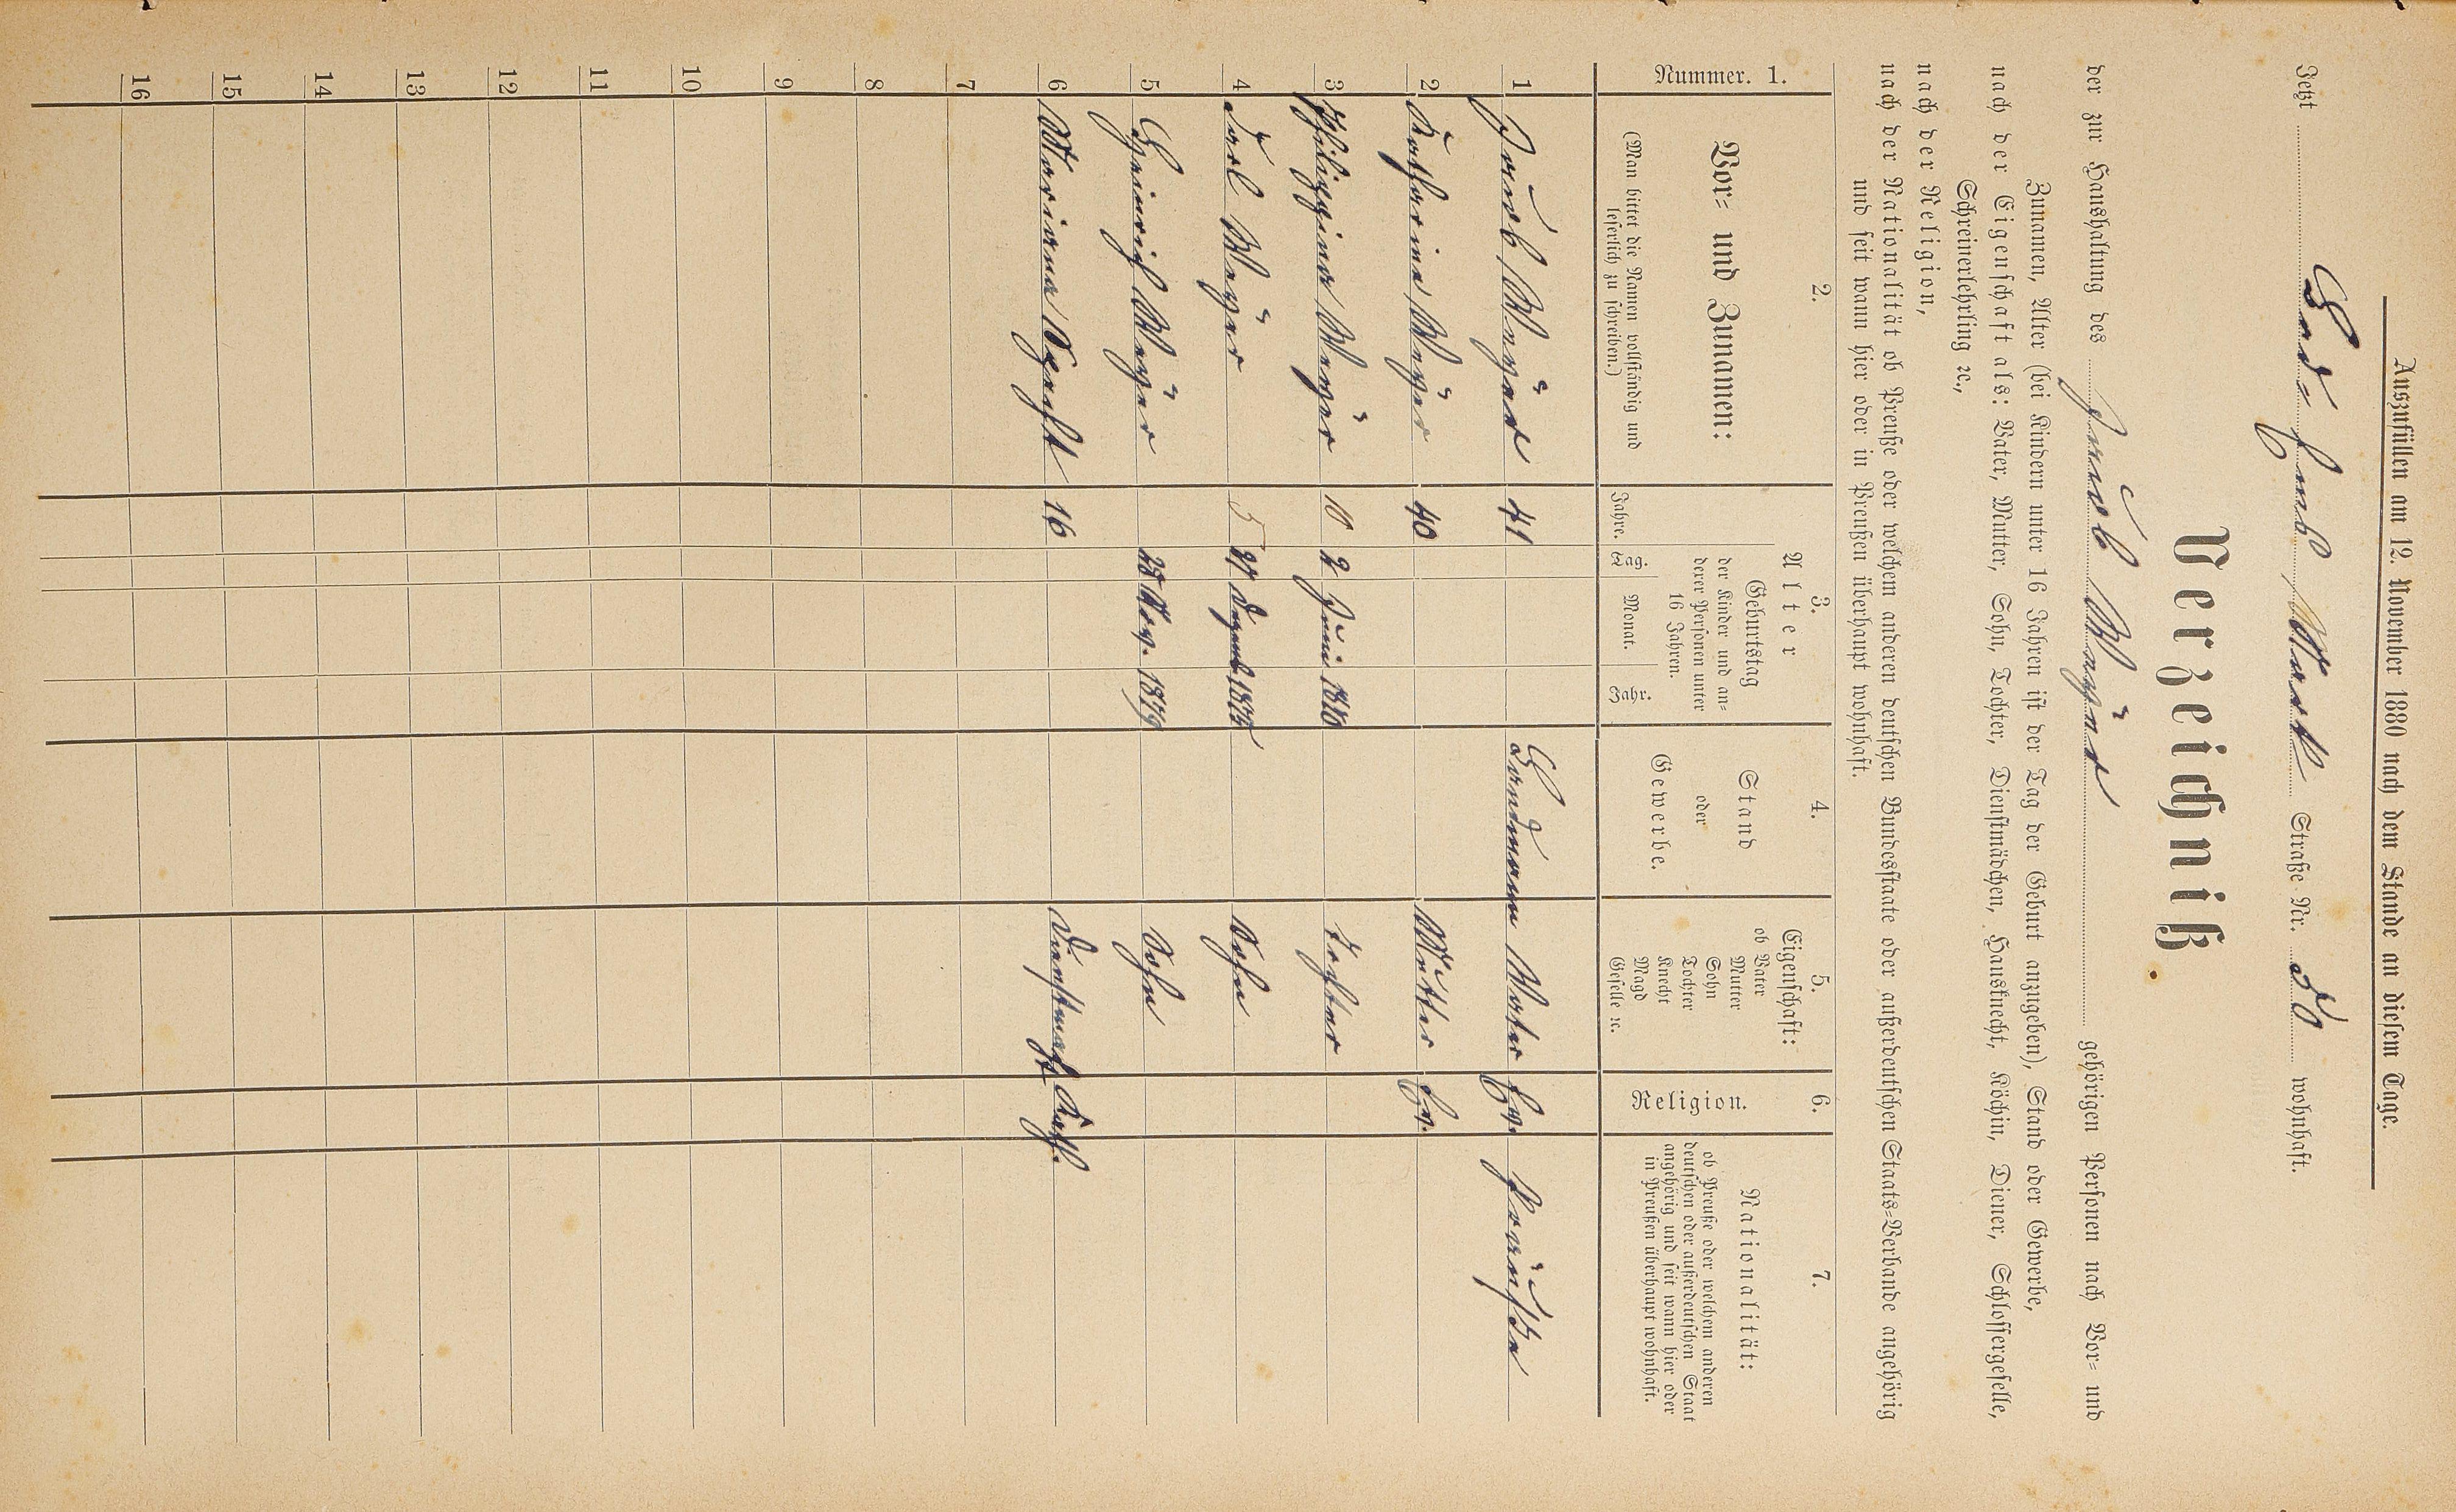 Auszufüllen am 12. November 1880 nach dem Stande an diesem Tage.
Jetzt Straße Nr. wohnhaft.
Verzeichniß
der zur Haushaltung des Jacob gehörigen Personen nach Vor= und
Zunamen, Alter (bei Kindern unter 16 Jahren ist der Tag der Geburt anzugeben), Stand oder Gewerbe,
nach der Eigenschaft als: Vater, Mutter, Sohn, Tochter, Dienstmädchen, Hausknecht, Köchin, Diener, Schlossergeselle,
Schreinerlehrling ꝛc.,
nach der Religion,
nach der Nationalität ob Preuße oder welchem anderen deutschen Bundesstaate oder außerdeutschen Staats=Verbande angehörig
und seit wann hier oder in Preußen überhaupt wohnhaft.
Nummer. 1.
2.
Vor= und Zunamen:
(Man bittet die Namen vollständig und
leserlich zu schreiben.)
3.
Alter
Geburtstag
der Kinder und an=
derer Personen unter
16 Jahren.
Jahre. Tag. Monat. Jahr.
4.
Stand
oder
Gewerbe.
5.
Eigenschaft:
ob Vater
Mutter
Sohn
Tochter
Knecht
Magd
Geselle ꝛc.
6.
Religion.
7.
Nationalität:
ob Preuße oder welchem anderen
deutschen oder außerdeutschen Staat
angehörig und seit wann hier oder
in Preußen überhaupt wohnhaft.
1 Jacob 41 Landmann Vater Ev. Preuße
2 Katharina 40 Mutter Ev.
3 Philippina 10 2 Juni 1870 Tochter
4 Karl 5 27 Dezemb. Sohn
5 Heinrich 28 Nov. 1879 Sohn
6 Mariana Specht 16 Dienstmagd Kath.
7
8
9
10
11
12
13
14
15
16